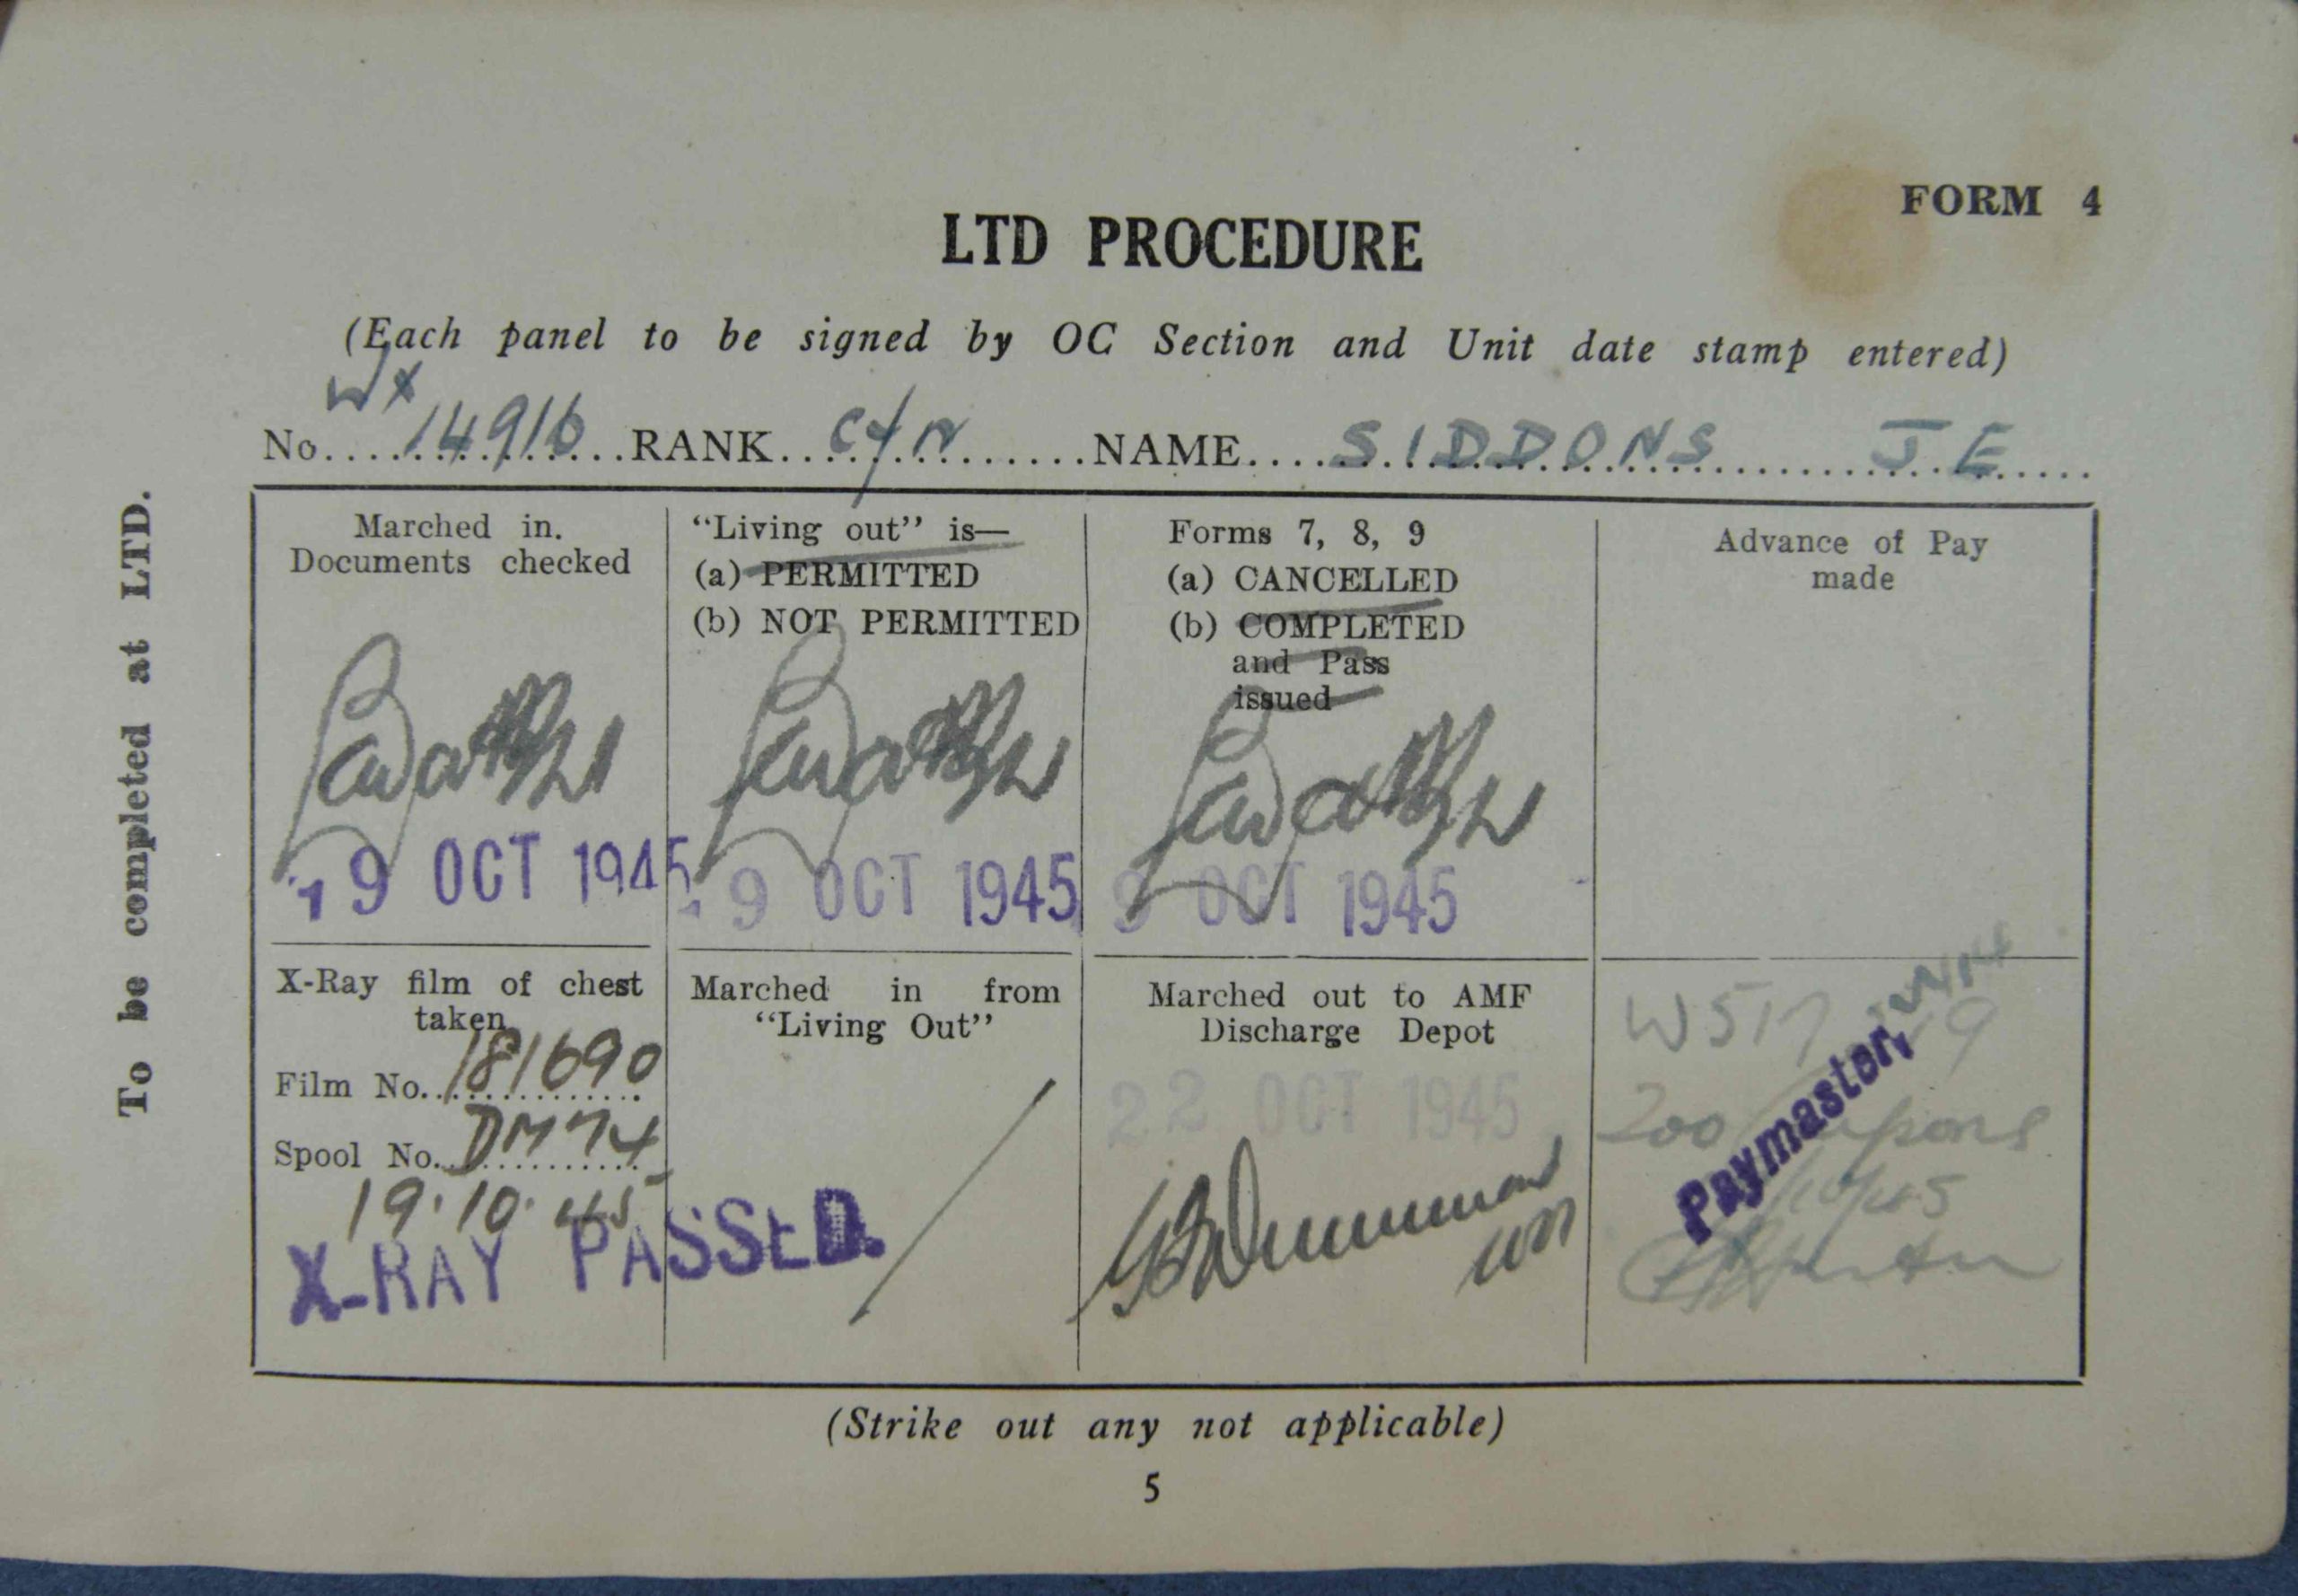 FORM 4
LTD PROCEDURE
(Each panel to be signed by OC Section and Unit date stamp entered)
WX
No....14916....RANK....C/N....NAME....SIDDONS J E....
To be completed at LTD.
Marched in.
Documents checked
19 OCT 1945
"Living out" is—
(a) PERMITTED
(b) NOT PERMITTED
19 OCT 1945
Forms 7, 8, 9
(a) CANCELLED
(b) COMPLETED
and Pass
issued
9 OCT 1945
Advance of Pay
made
X-Ray film of chest
taken
Film No. 181690
Spool No. DM74
19.10.45
X-RAY PASSED.
Marched in from
"Living Out"
Marched out to AMF
Discharge Depot
22 OCT 1945
200
Paymaster,
(Strike out any not applicable)
5